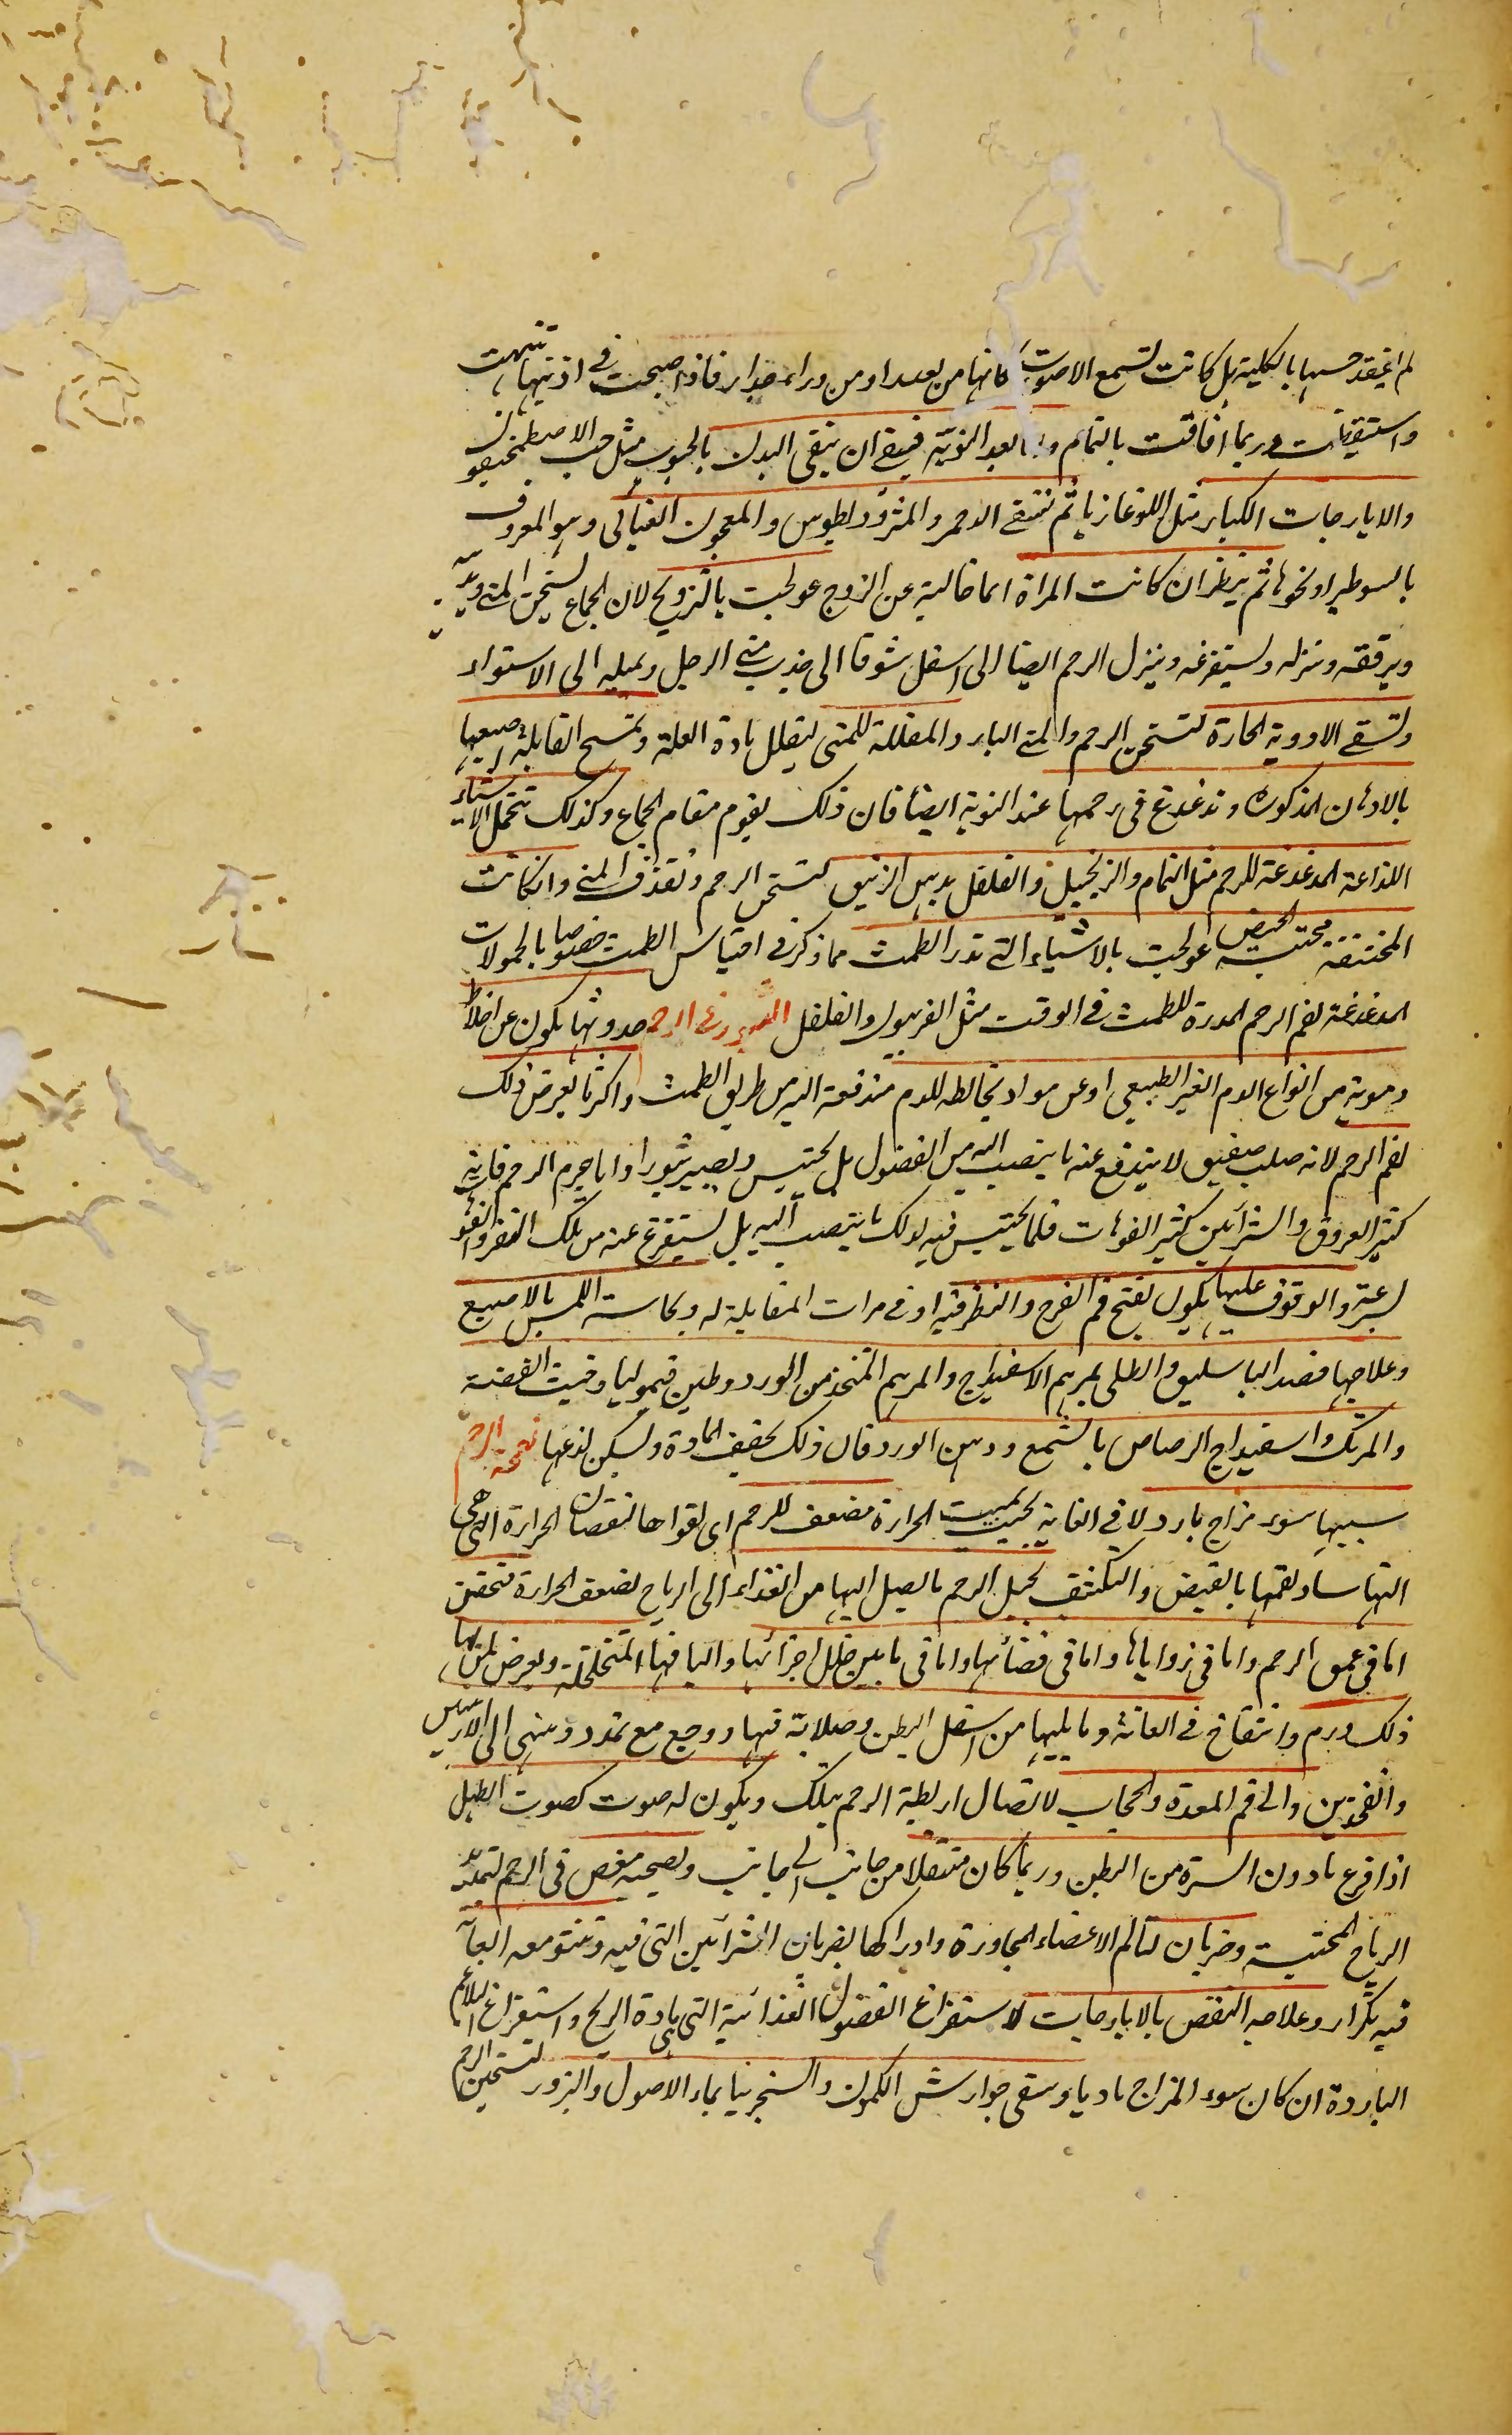 لم يفقد حسها بالكلية بل كانت تسمع الاصوات كانها من بعد او من وراء جدار فاذا صيحت فى اذنيها تنبهت
واستيقظت وربما افاقت بالتمام واما بعد النوبة فينبغى ان ينقى البدن بالحبوب مثل حب الاصطمخيقون
والايارجات الكبار مثل اللوغاذيا ثم تسقى الدحمرثا والمثروديطوس والمعجون الغياثى وهو المعروف
بالسوطيرا ونحوها ثم ينظر ان كانت المراة ايما خالية عن الزوج عولجت بالتزويج لان الجماع يسخن المنى ويذيبه
ويرققه وينزله ويستفرغه وينزل الرحم ايضا الى اسفل شوقا الى جذب منى الرجل ويميله الى الاستواء
وتسقى الادوية الحارة لتسخن الرحم والمنى البارد والمقللة للمنى ليقلل مادة العلة وتمسح القابلة اصبعها
بالادهان المذكورة وتدغدغ فى رحمها عند النوبة ايضا فان ذلك يقوم مقام الجماع وكذلك تتحمل الاشياء
اللذاعة المدغدغة للرحم مثل النمام والزنجبيل والفلفل بدهن الزنبق لتسخن الرحم وتقذف المنى وان كانت
المختنقة محتبسة الحيض عولجت بالاشياء التى تدر الطمث مما ذكر فى احتباس الطمث خصوصا بالحمولات
المدغدغة لفم الرحم المدرة للطمث فى الوقت مثل الفربيون والفلفل البثور فى الرحم حدوثها يكون عن اخلاط
دموية من انواع الدم الغير الطبيعى او عن مواد تخالطه للدم مندفعة اليه من طريق الطمث واكثر ما يعرض ذلك
لفم الرحم لانه صلب صفيق لا يندفع عنه ما ينصب اليه من الفضول بل يحتبس ويصير بثورا واما جرم الرحم فانه
كثير العروق والشرائين كثير الفوهات فلما يحتبس فيه لذلك ما ينصب اليه بل يستفرغ عنه من تلك
بسرعة والوقوف عليها يكون بفتح فم الفرج والنظر فيه او فى مرات المقابلة له وبحاسة اللمس بالاصبع
وعلاجها فصد الباسليق والطلى بمرهم الاسفيداج والمرهم المتخذ من الورد وطين قيموليا وخبث الفضة
والمرتك واسفيداج الرصاص بالشمع ودهن الورد فان ذلك يجفف المادة ويسكن لذعها نفخة الرحم
سببها سوء مزاج بارد لا فى الغاية بحيث يميت الحرارة مضعف للرحم اى لقواها لنقصان الحرارة التى هى
التها يحيل الرحم ما يصل اليها من الغذاء الى الرياح لضعف الحرارة فتحتقن
اما فى عمق الرحم واما فى زواياها واما فى فضائها واما فى ما بين خلل اجزائها واليافها المتخلخلة ويعرض لمن بها
ذلك ورم وانتفاخ فى العانة وما يليها من اسفل البطن وصلابة فيها ووجع مع تمدد وينتهى الى الاربيتين
والفخذين والى فم المعدة والحجاب لاتصال اربطة الرحم بتلك ويكون له صوت كصوت الطبل
اذا قرع ما دون السرة من البطن وربما كان منتقلا من جانب الى جانب ويصحبه مغص فى الرحم لتمدد
الرياح المحتبسة وضربان لتالم الاعضاء المجاورة وادراكها لضربان الشرائين التى فيه وتنتو معه العانة
فيه بتكرار وعلاجه النفض بالايارجات لاستفراغ الفضول الغذائية التى هى مادة الريح واستفراغ البلاغم
الباردة ان كان سوء المزاج ماديا وسقى جوارش الكمون والسنجرنيا بماء الاصول والبزور لتسخين الرحم